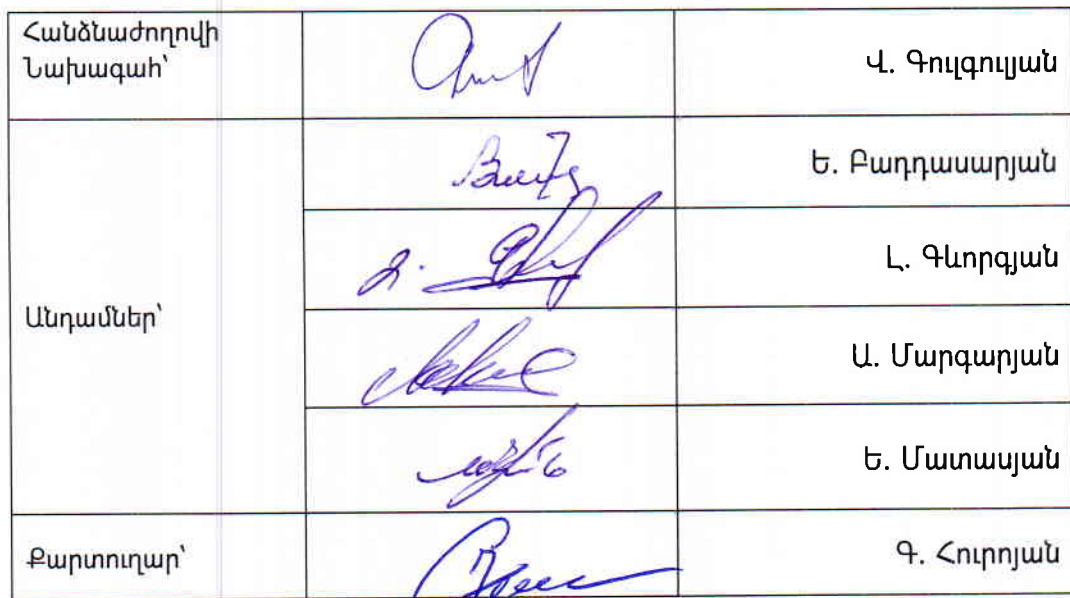 Հանձնաժողովի
Նախագահ՝
Վ. Գուլգուլյան
Ե. Բաղդասարյան
Լ. Գևորգյան
Անդամներ՝
Ա. Մարգարյան
Ե. Մատասյան
Քարտուղար՝
Գ. Հուրոյան